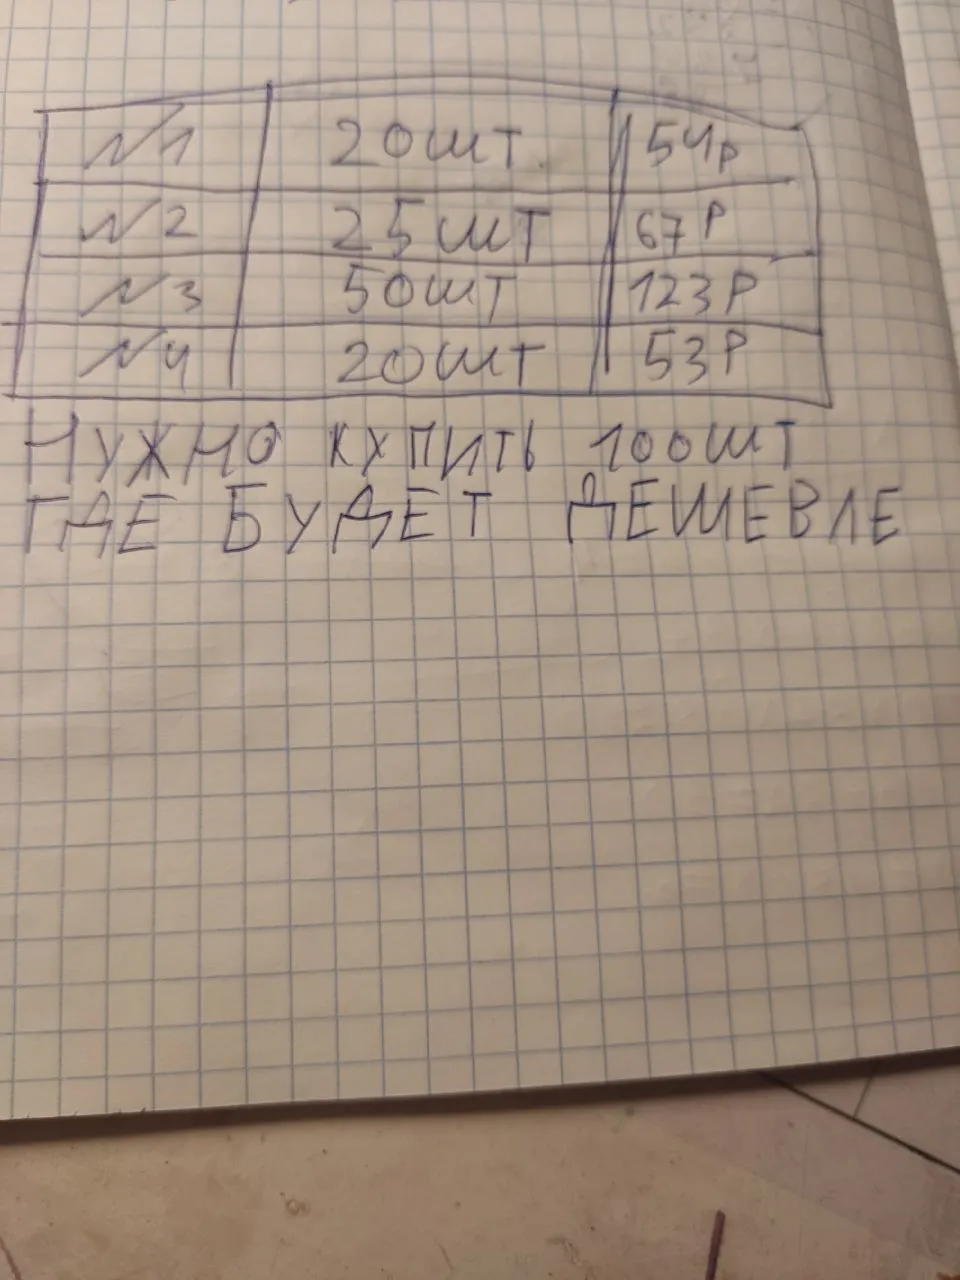 №1 20шт 54р
№2 25шт 67р
№3 50шт 123р
№4 20шт 53р
Нужно купить 100шт
где будет дешевле